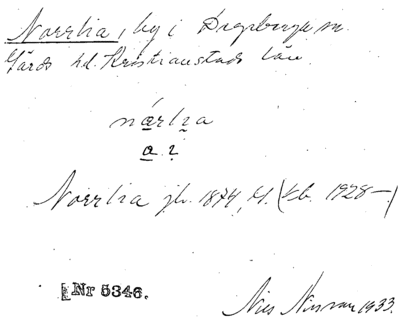 Norrlia, by i Degeberga sn.
Gärds hd. Kristianstads län.
nárlı̣a
a. ị
Norrlia jb. 1874, kf. (Eb. 1928—)
Nr 5346.
Nils 1933.